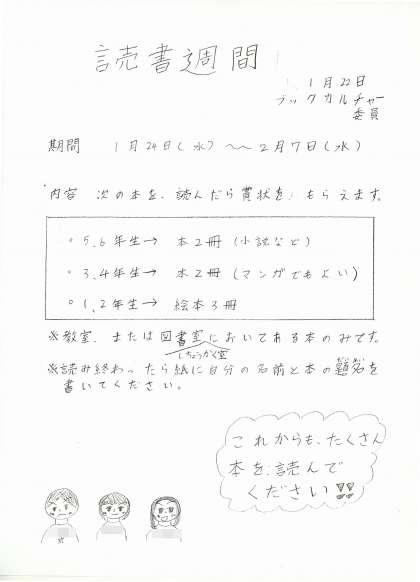 読書週間
1月22日
ブックカルチャー
委員
期間 1月24日(水)〜〜2月7日(水)
内容 次の本を、読んだら賞状を、もらえます。
◦5.6年生→ 本2冊(小説など)
◦3.4年生→ 本2冊(マンガでもよい)
◦1.2年生→ 絵本3冊
※教室、または図書室においてある本のみです。
しちょうかく室
※読み終わったら紙に自分の名前と本の題名を
書いてください。
これからも、たくさん
本を読んで
ください!!